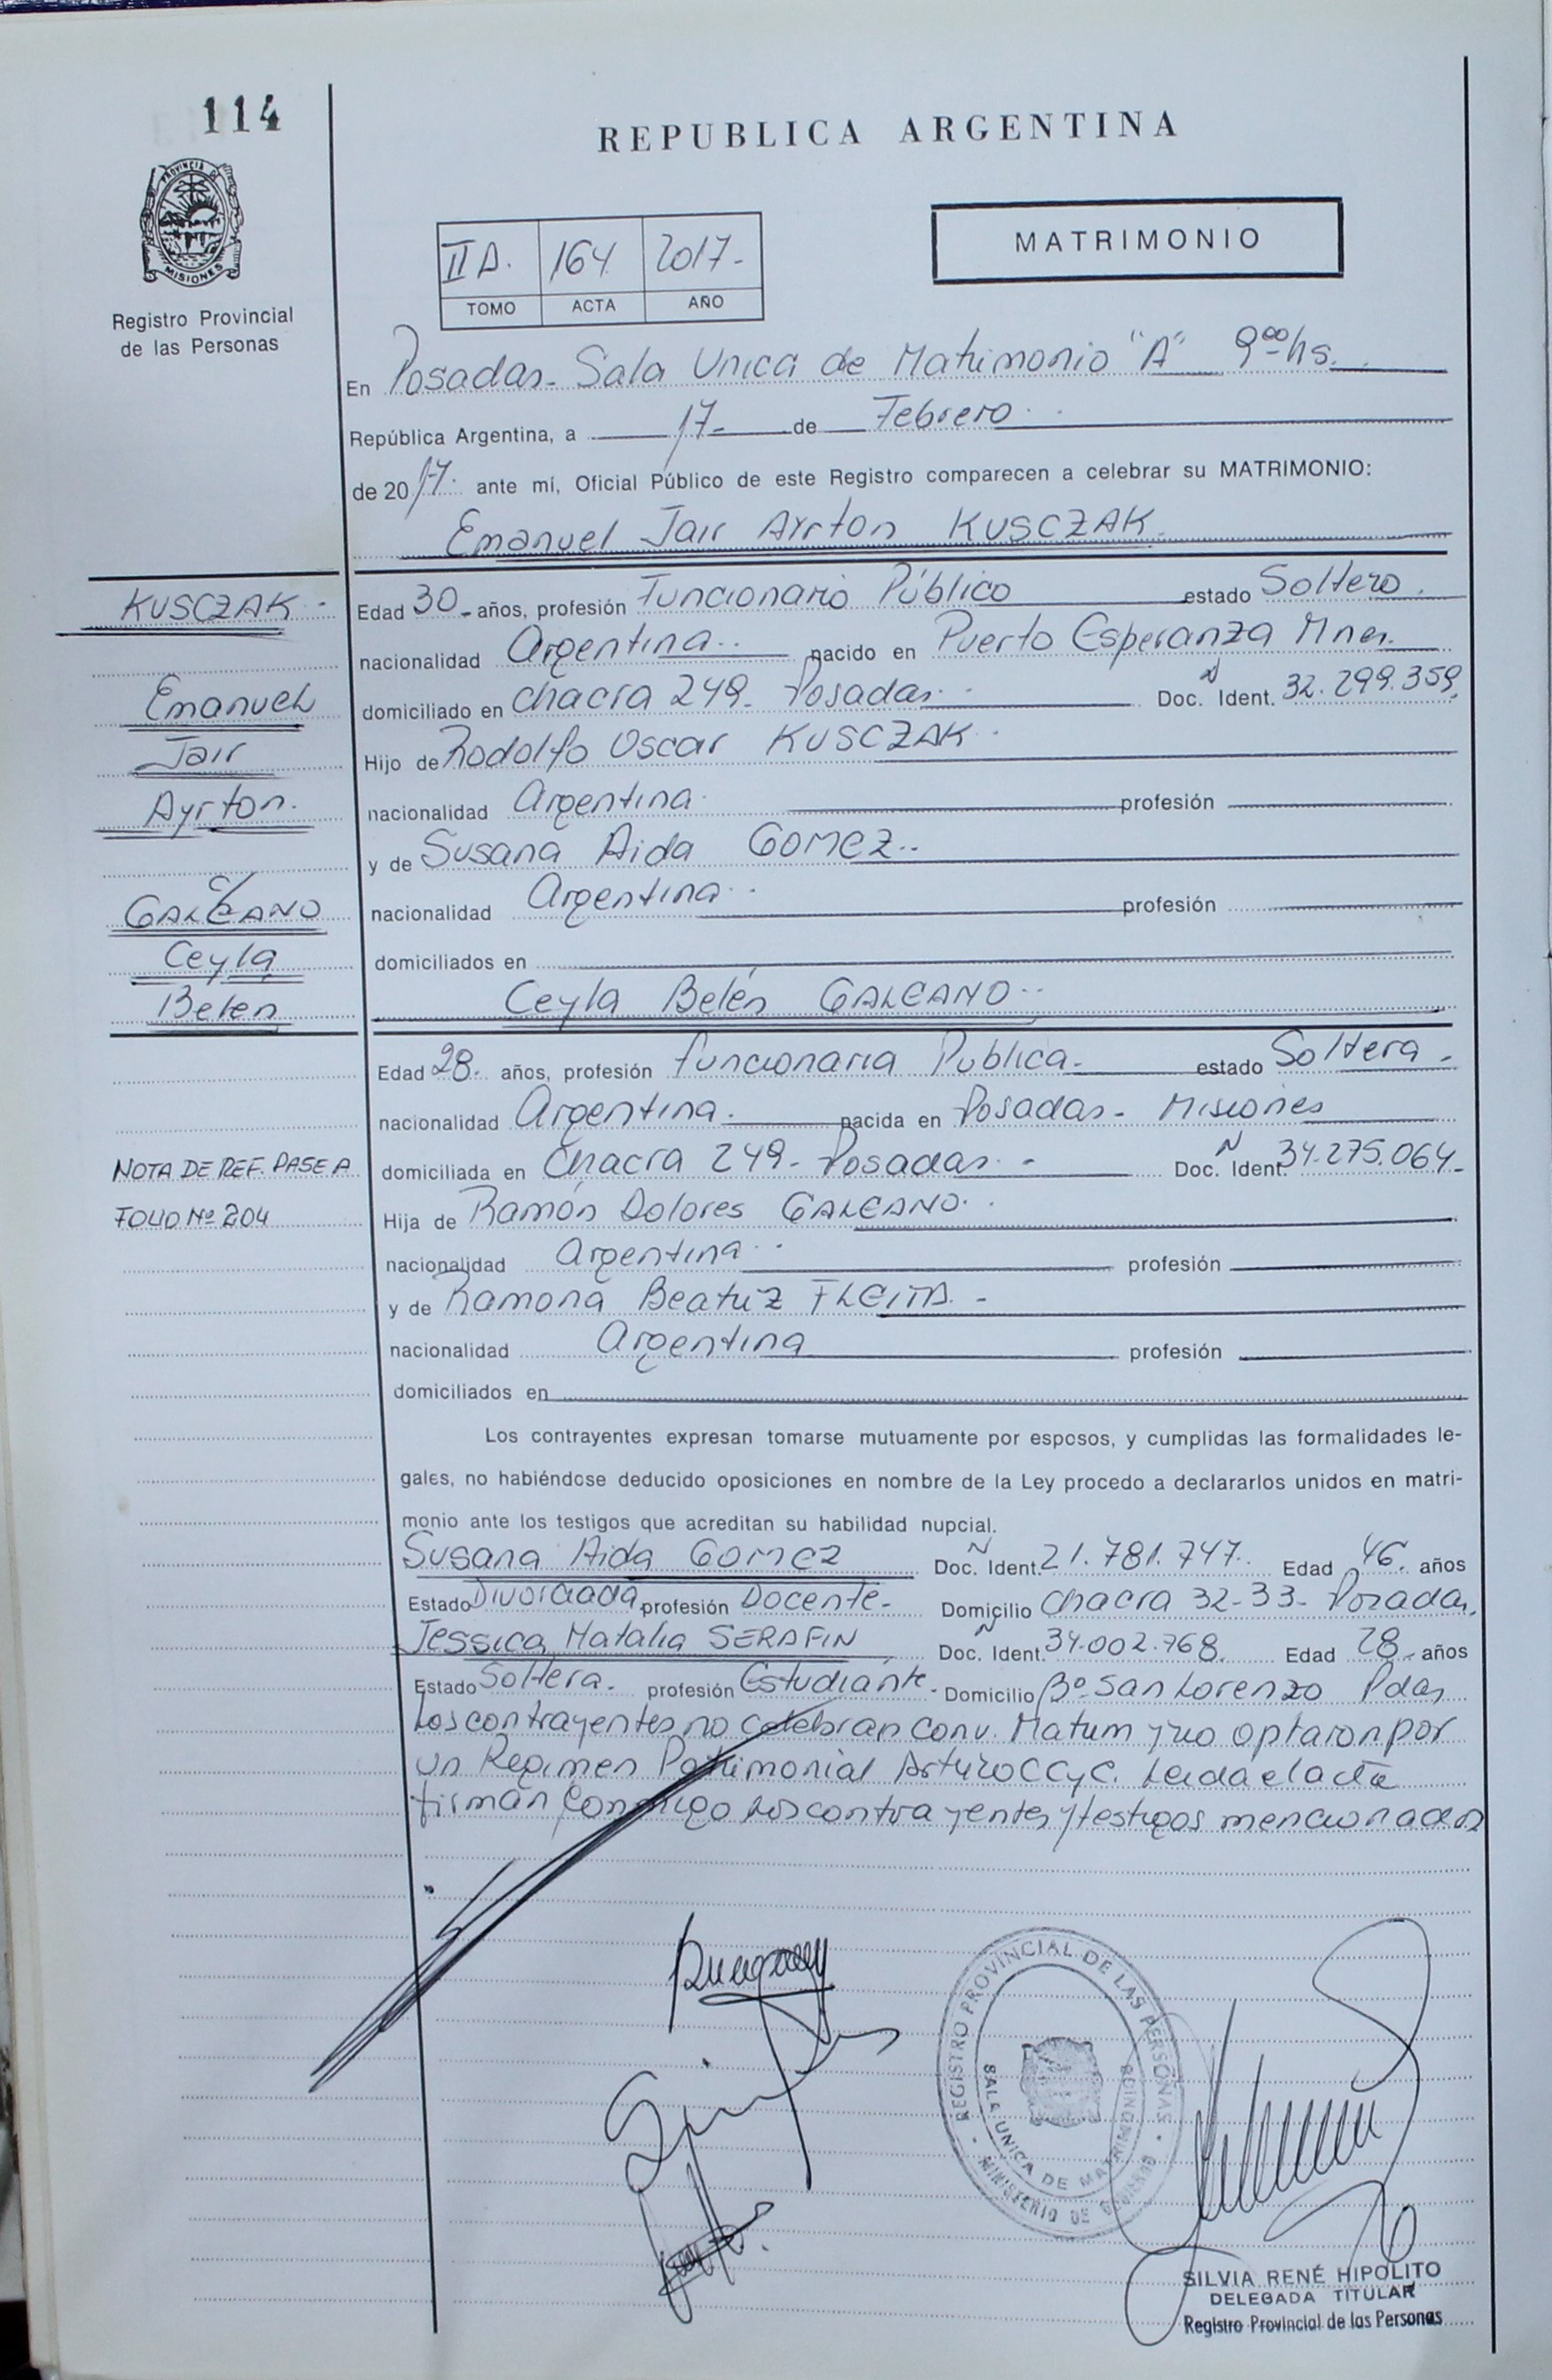 114
REPUBLICA ARGENTINA
PROVINCIA DE
MISIONES
Registro Provincial
de las Personas
II A. 164 2017.-
TOMO ACTA AÑO
MATRIMONIO
En Posadas- Sala Unica de Matrimonio "A" 9⁰⁰hs.
República Argentina, a 17- de Febrero
de 2017. ante mí, Oficial Público de este Registro comparecen a celebrar su MATRIMONIO:
Emanuel Jair Ayrton KUSCZAK.
KUSCZAK -
Emanuel
Jair
Ayrton.
c/
GALEANO
Ceyla
Belen
Edad 30- años, profesión Funcionario Público estado Soltero.
nacionalidad Argentina.. nacido en Puerto Esperanza Mnes.
domiciliado en Chacra 249- Posadas.- Doc. Ident. N 32.299.359.
Hijo de Rodolfo Oscar KUSCZAK -
nacionalidad Argentina. profesión
y de Susana Aida GOMEZ..
nacionalidad Argentina.. profesión
domiciliados en
Ceyla Belén GALEANO..
Edad 28. años, profesión Funcionaria Publica.- estado Soltera.
nacionalidad Argentina. nacida en Posadas- Misiones
domiciliada en Chacra 249- Posadas.- Doc. Ident. N 34.275.064-
NOTA DE REF. PASE A
FOLIO Nº 204
Hija de Ramón Dolores GALEANO..
nacionalidad Argentina.. profesión
y de Ramona Beatriz FLEITA.-
nacionalidad Argentina profesión
domiciliados en
Los contrayentes expresan tomarse mutuamente por esposos, y cumplidas las formalidades le-
gales, no habiéndose deducido oposiciones en nombre de la Ley procedo a declararlos unidos en matri-
monio ante los testigos que acreditan su habilidad nupcial.
Susana Aida GOMEZ Doc. Ident. N 21.781.747. Edad 46. años
Estado Divorciada profesión Docente- Domicilio Chacra 32-33- Posadas.
Jessica Natalia SERAFIN Doc. Ident. N 34.002.768. Edad 28- años
Estado Soltera. profesión Estudiante- Domicilio Bº San Lorenzo Pdas
Los contrayentes no celebran conv. Matrim y no optaron por
un Regimen Patrimonial CCyC. Leida el acta
firman conmigo los contrayentes y testigos mencionados
REGISTRO PROVINCIAL DE LAS PERSONAS
SALA UNICA DE MATRIMONIOS
MINISTERIO DE GOBIERNO
SILVIA RENÉ HIPOLITO
DELEGADA TITULAR
Registro Provincial de las Personas